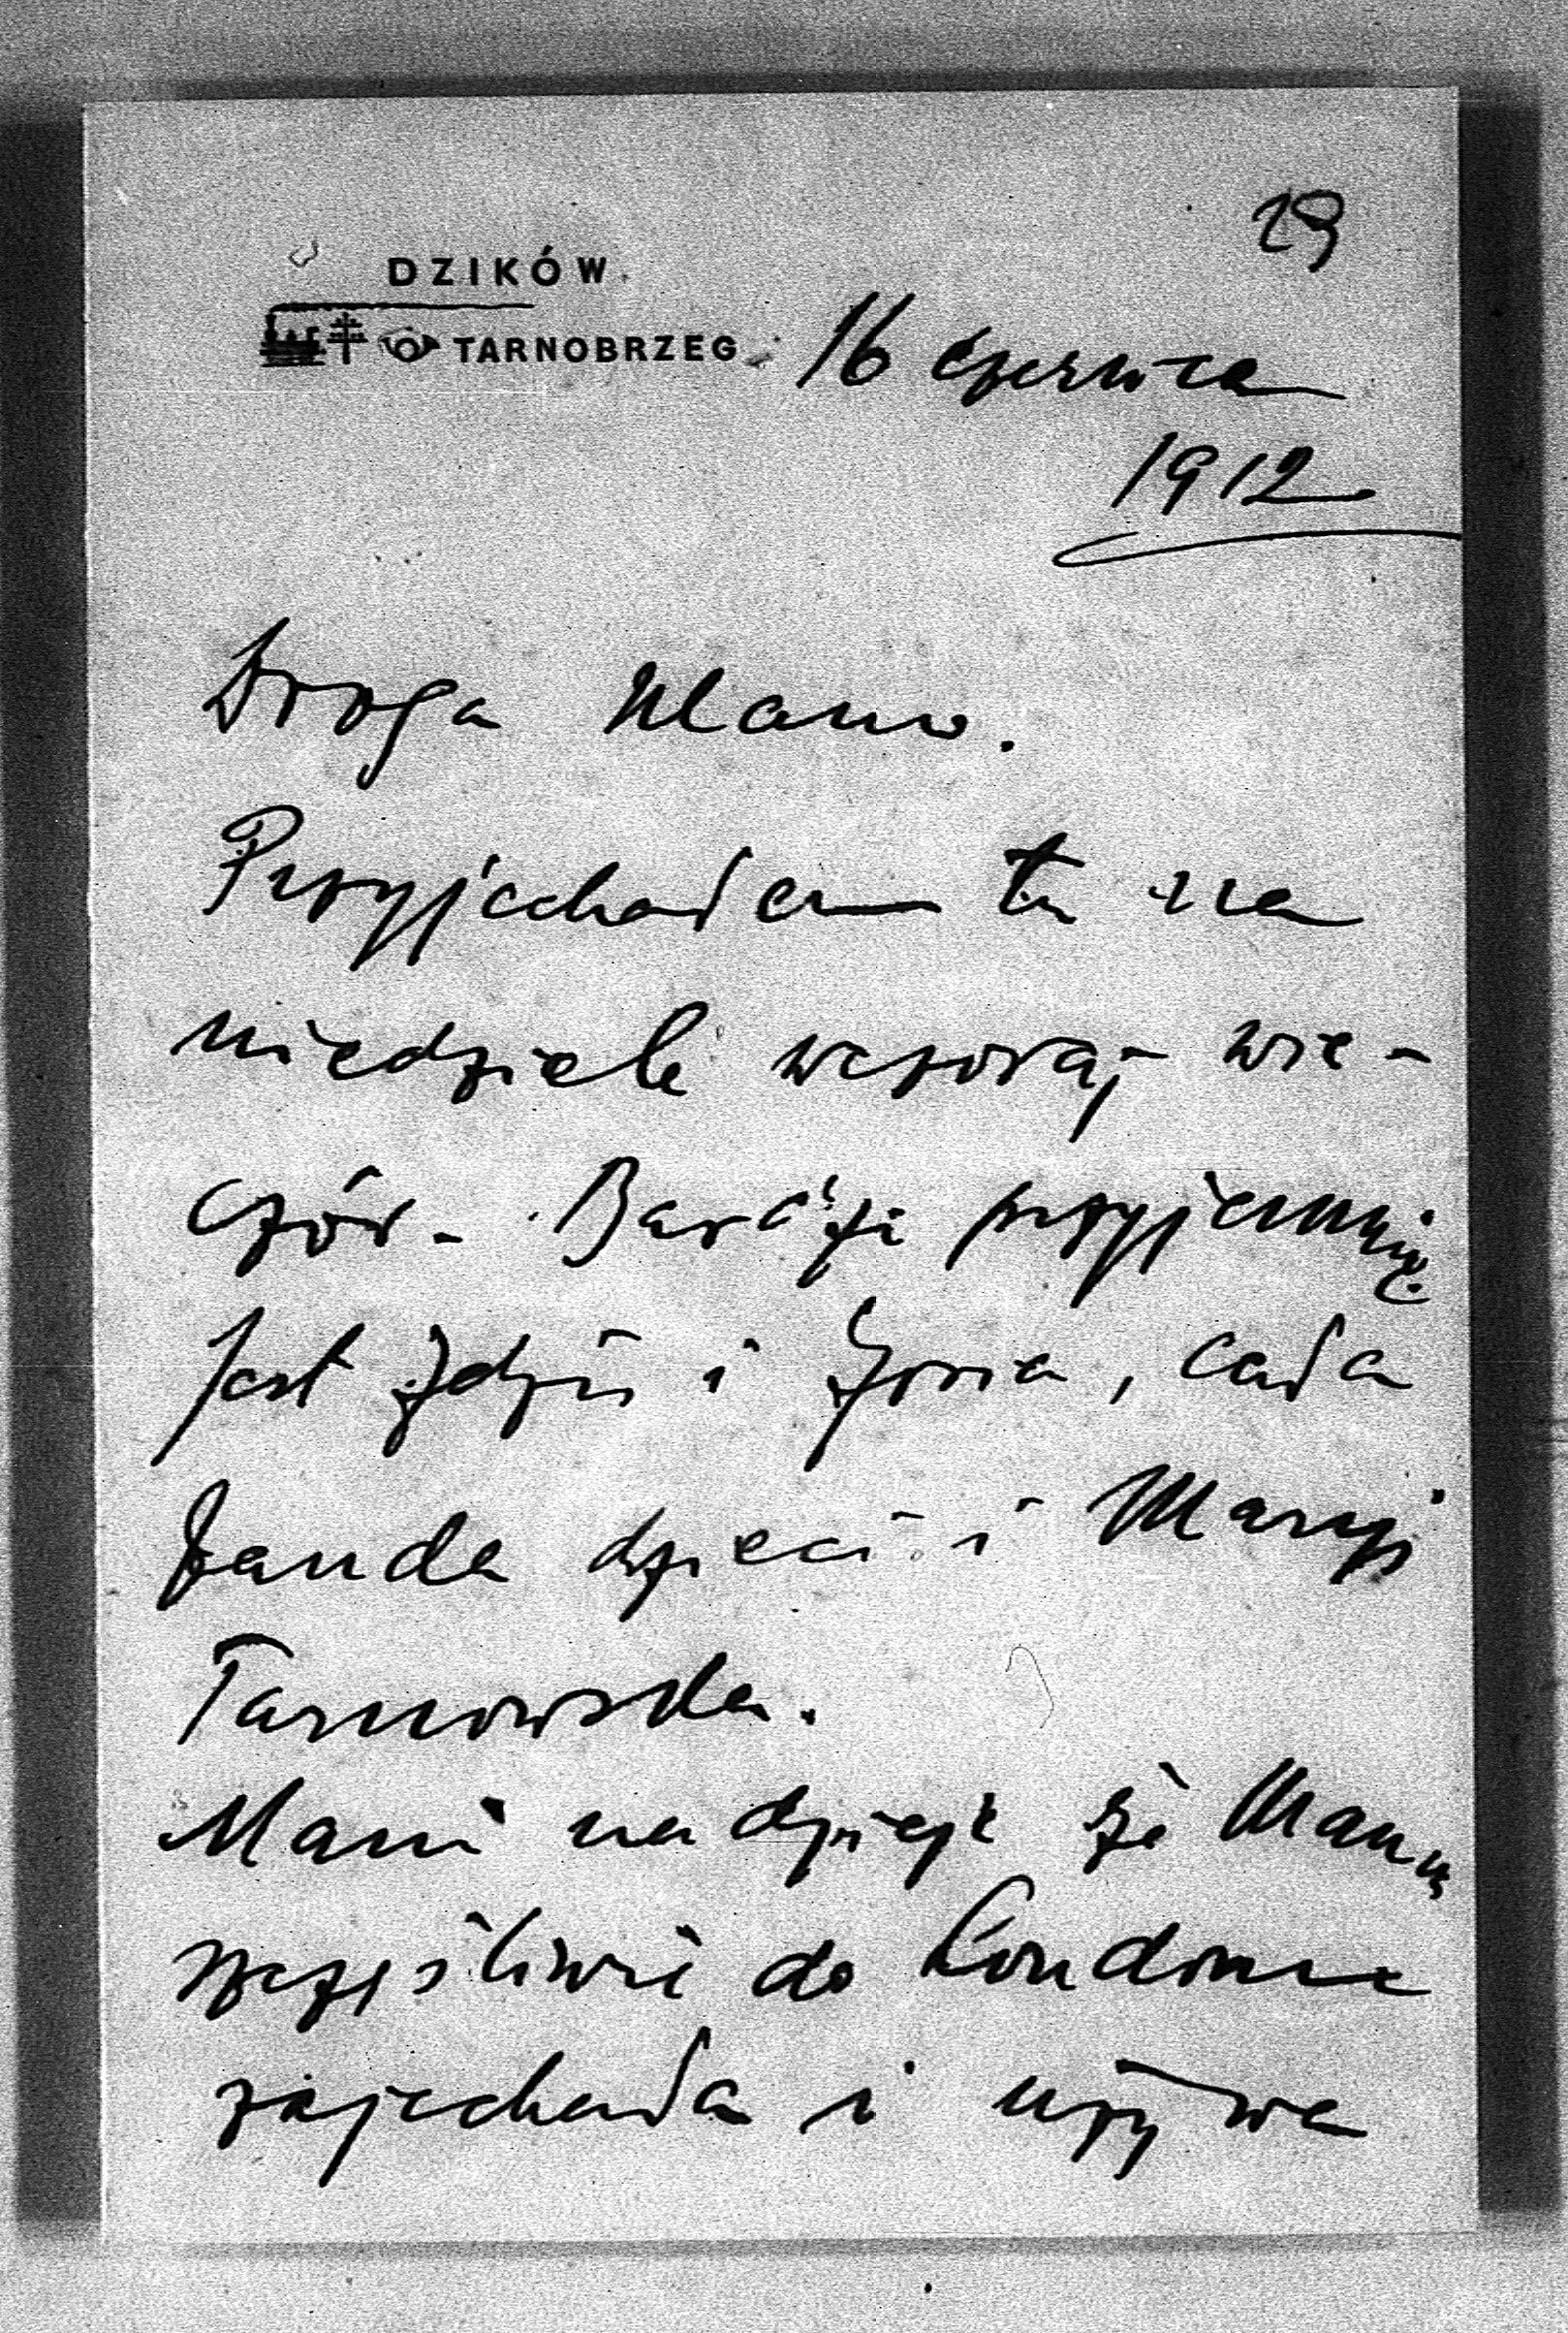 29
DZIKÓW
TARNOBRZEG
16 czerwca
1912
Droga Mamo.
Przyjechałem tu na
niedziele wczoraj wie-
czór. Bardzo przyjemnie
jest Zdziś i Zosia, cała
banda dzieci i Maryś
Tarnowska.
Mam nadzieję że Mama
szczęśliwie do Londonu
zajechała i używa